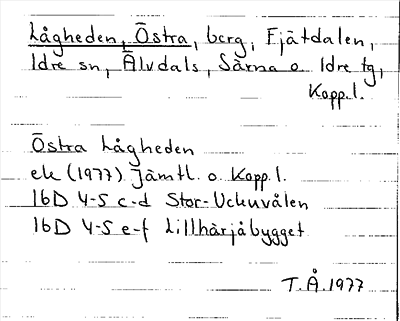 Lågheden, Östra, berg, Fjätdalen,
Idre sn, Älvdals, Särna o. Idre tg,
Kopp.l.
Östra Lågheden
ek (1977) Jämtl. o. Kopp.l.
16D 4-5 c-d Stor-Uckuvålen
16D 4-5 e-f Lillhärjåbygget
T.Å.1977